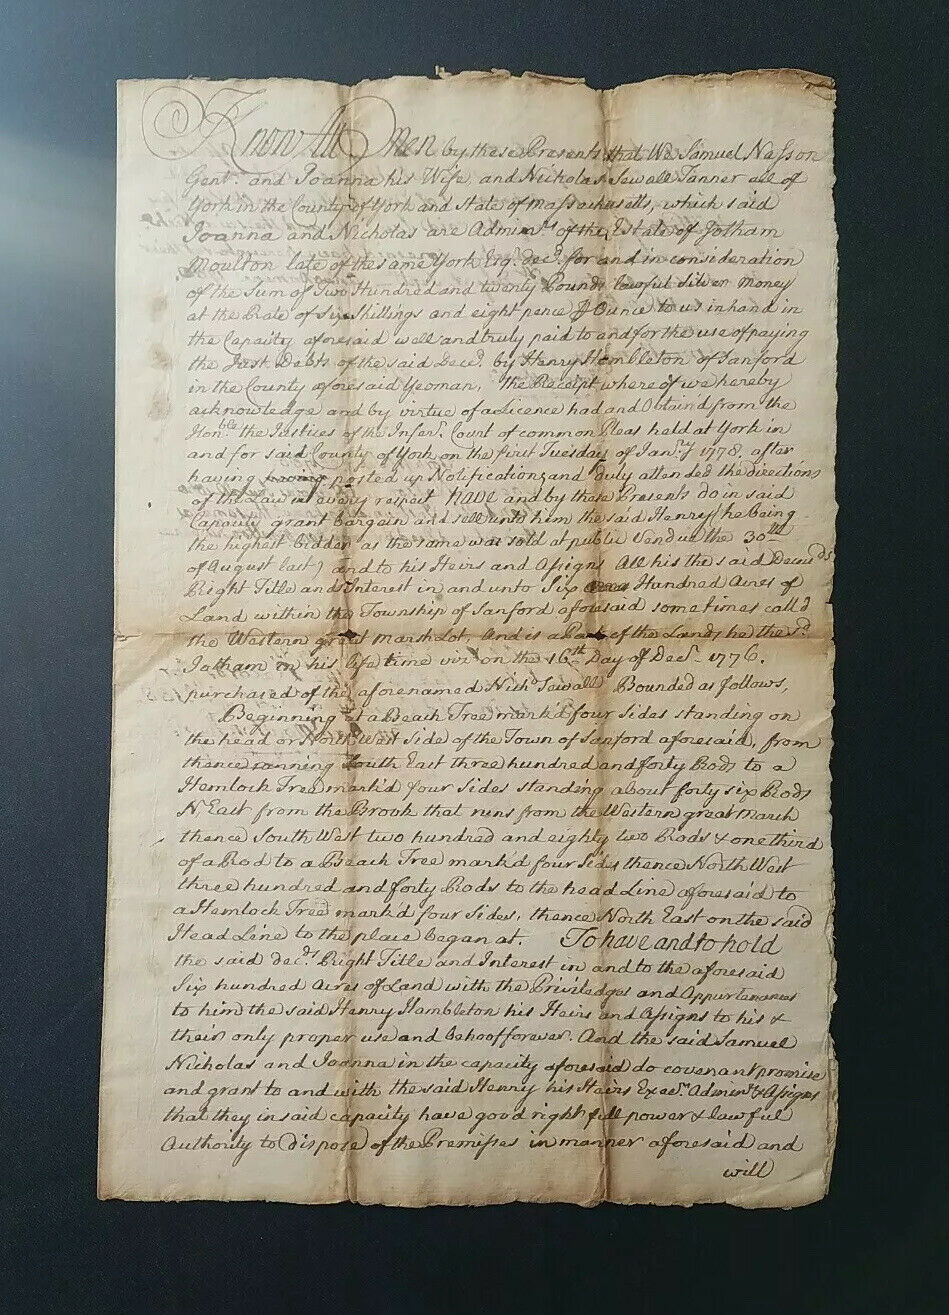 Know All Men by these Presents that We Samuel Nasson
Gent. and Joanna his Wife, and Nicholas Sewall Tanner all of
York in the County of York and State of Massachusetts, which said
Joanna and Nicholas are Admin.rs of the Estate of Jotham
Moulton late of the same York Esq.r dec.d for and in consideration
of the Sum of Two Hundred and twenty Pounds lawful Silver Money
at the Rate of Six Shillings and eight pence ⅌ Ounce to us in hand in
the Capacity aforesaid well and truly paid to and for the use of paying
the Just Debts of the said Dec.d by Henry Hambleton of Sanford
in the County aforesaid Yeoman, The Receipt where of we hereby
acknowledge and by virtue of a Licence had and Obtain'd from the
Hon.ble the Justices of the Infer.r Court of common Pleas held at York in
and for said County of York on the first Tuesday of Jan.ry 1778. after
having posted up Notifications and duly attended the directions
of the Law in every respect have and by these Presents do in said
Capacity grant bargain and sell unto him the said Henry (he being
the highest bidder as the same was sold at public Vendue the 30th
of August last) and to his Heirs and Assigns All his the said Deceas'ds
Right Title and Interest in and unto Six Hundred Acres of
Land within the Township of Sanford aforesaid sometimes call'd
the Western great Marsh Lot, And is a Part of the Lands he the s.d
Jotham in his life time viz.t on the 16th Day of Dec.r 1776.
purchased of the aforenamed Nich.s Sewall Bounded as follows,
Beginning at a Beach Tree mark'd four Sides standing on
the head or North West Side of the Town of Sanford aforesaid, from
thence running South East three hundred and forty Rods to a
Hemlock Tree mark'd four Sides standing about forty six Rods
N. East from the Brook that runs from the Western great Marsh
thence South West two hundred and eighty two Rods & one third
of a Rod to a Beach Tree mark'd four Sides thence North West
three hundred and forty Rods to the head Line aforesaid to
a Hemlock Tree mark'd four Sides, thence North East on the said
Head Line to the place began at. To have and to hold
the said dec.ds Right Title and Interest in and to the aforesaid
Six hundred Acres of Land with the Priviledges and Appurtenances
to him the said Henry Hambleton his Heirs and Assigns to his &
their only proper use and behoof forever. And the said Samuel
Nicholas and Joanna in the capacity aforesaid do covenant promise
and grant to and with the said Henry his Heirs Exec.rs Admin.rs & Assigns
that they in said capacity have good right full power & lawful
Authority to dispose of the Premises in manner aforesaid and
will